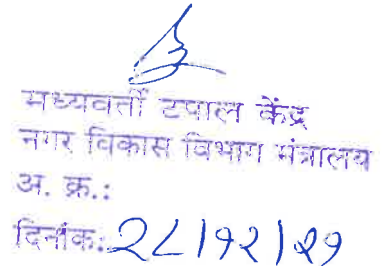 मध्यवर्ती टपाल केंद्र
नगर विकास विभाग मंत्रालय
अ. क्र.:
दिनांक: २८/१२/२१